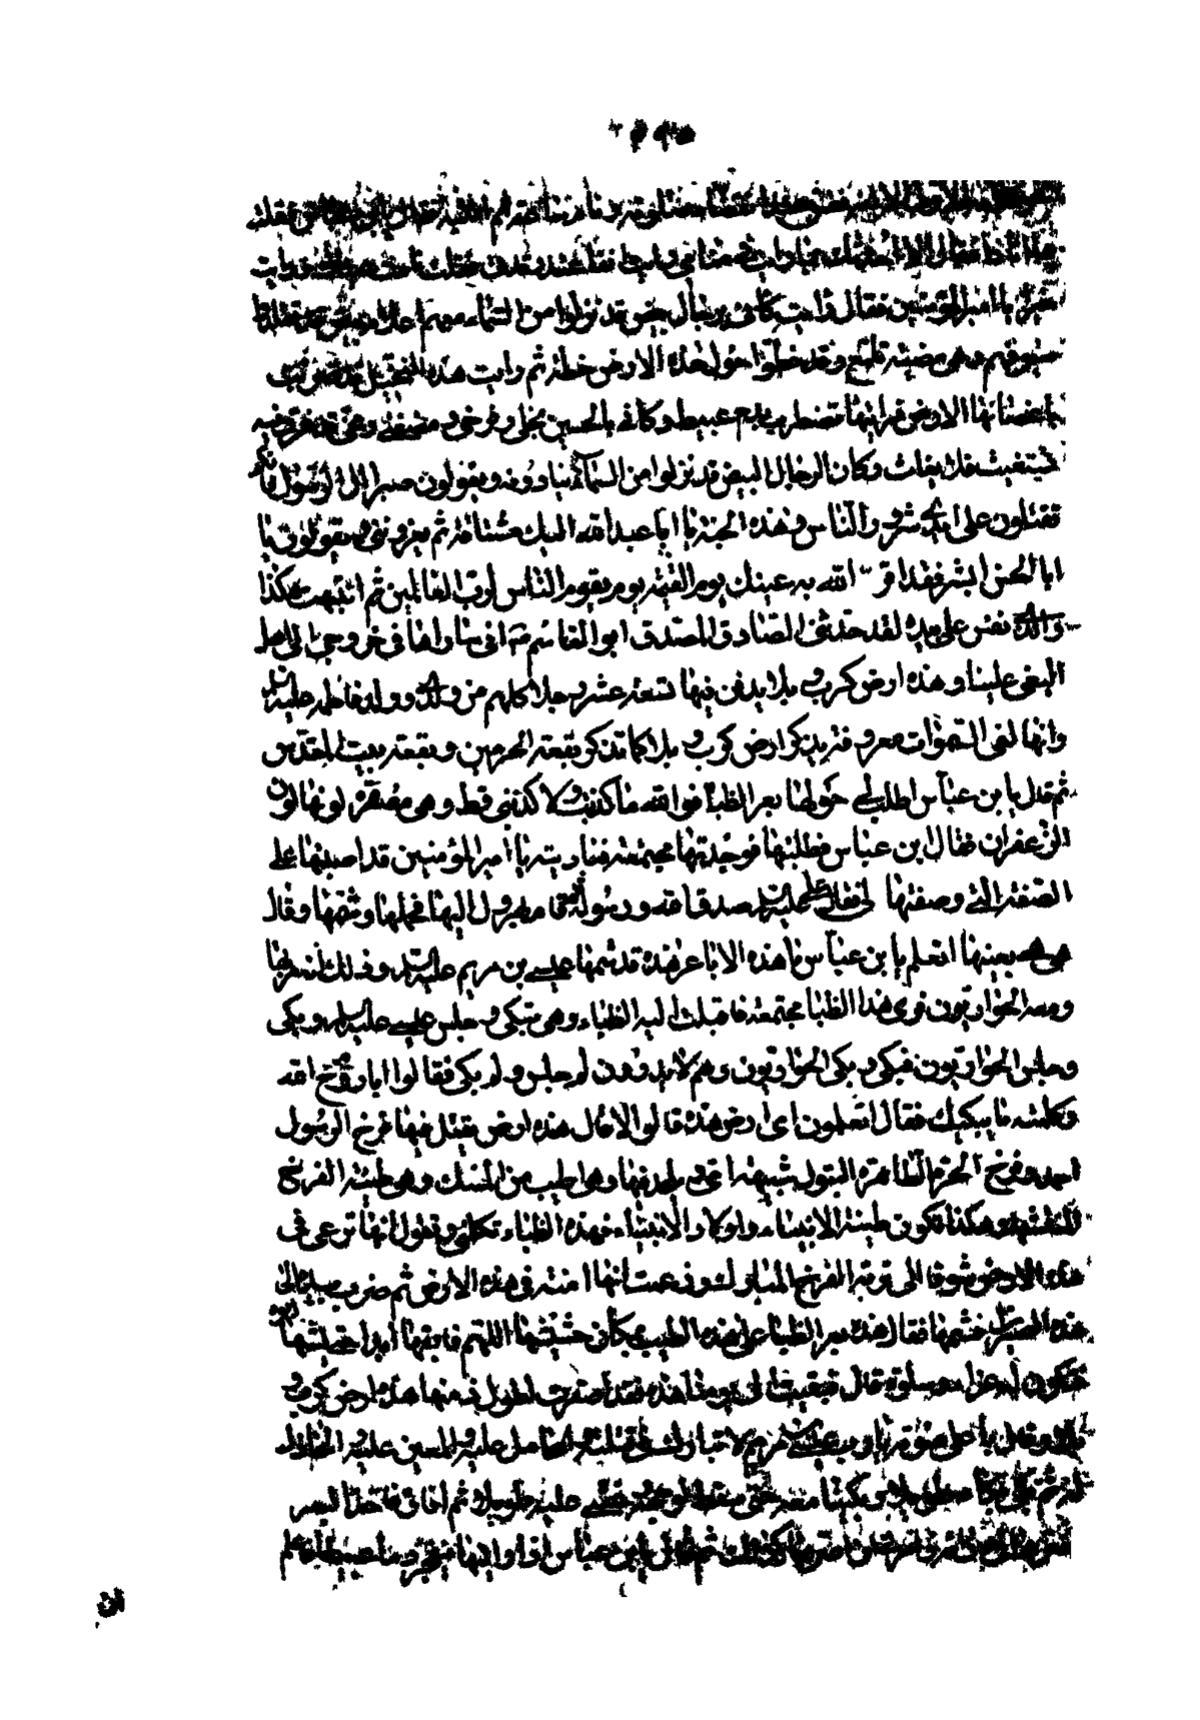 فقال الا احدثك بما رايت في منامي
يا امير المؤمنين فقال رايت كاني برجال بيض قد نزلوا من السماء معهم
سيوفهم وهي بيض تلمع وقد خطوا حول هذه الارض خطة ثم رايت هذه النخيل قد ضربت
باغصانها الارض تضطرب بدم عبيط وكاني بالحسين نجلي وفرخي
يستغيث فلا يغاث وكان الرجال البيض قد نزلوا من السماء ينادونه ويقولون صبرا ال الرسول فانكم
تقتلون على ايدي شرار الناس وهذه الجنة يا ابا عبدالله اليك مشتاقة ثم يعزونني ويقولون يا
ابا الحسن ابشر فقد اقر الله به عينك يوم القيمة يوم يقوم الناس لرب العالمين ثم انتبهت هكذا
والذي نفس علي بيده لقد حدثني الصادق المصدق ابو القاسم اني ساراها في خروجي الى اهل
البغي علينا وهذه ارض كرب وبلا يدفن فيها سبعة عشر رجلا كلهم من ولدي وولد فاطمة عليها السلم
وانها لفي السموات معروفة يذكر ارض كرب وبلا كما تذكر بقعة الحرمين وبقعة بيت المقدس
ثم قال يا بن عباس اطلب لي حولها بعر الظبا فوالله ما كذبت ولا كذبني قط وهي مصفرة لونها لون
الزعفران فقال ابن عباس فطلبتها فوجدتها مجتمعة فناديته يا امير المؤمنين قد اصبتها على
الصفة التي وصفتها لي فقال علي عليه السلم صدق الله ورسوله ثم قام يهرول اليها فحملها وشمها وقال
هي هي بعينها اتعلم يا بن عباس ما هذه الاباعر هذه قد شمها عيسى بن مريم عليه السلم وذلك انه مر بها
ومعه الحواريون فراى هذا الظبا مجتمعة فاقبلت اليه الظباء وهي تبكي وجلس عيسى عليه السلم وبكى
وجلس الحواريون فبكى وبكى الحواريون وهم لا يدرون لم جلس ولم بكى فقالوا يا روح الله
وكلمته ما يبكيك فقال اتعلمون اي ارض هذه قالوا لا قال هذه ارض يقتل فيها فرخ الرسول
احمد وفرخ الحرة الطاهرة البتول شبيهة امي ويلحد فيها وهي اطيب من المسك وهي طينة الفرخ
المستشهد وهكذا تكون طينة الانبياء واولاد الانبياء فهذه الظباء تكلمني وتقول انها ترعى في
هذه الارض شوقا الى تربة الفرخ المبارك وزعمت انها امنة في هذه الارض ثم ضرب بيده الى
هذه الصيران فشمها فقال هذه بعر الظبا على هذه الطيب لمكان حشيشها اللهم فابقها ابدا حتى يشمها ابوه
فتكون له عزاء وسلوة قال فبقيت الى يومنا هذا وقد اصفرت لطول زمنها هذه ارض كرب و
بلا وقال باعلى صوته يا رب عيسى بن مريم لا تبارك في قتلته والحامل عليه والمعين عليه والخاذل
له ثم بكى بكاء طويلا وبكينا معه حتى سقط لوجهه وغشي عليه طويلا ثم افاق فاخذ البعر
ان